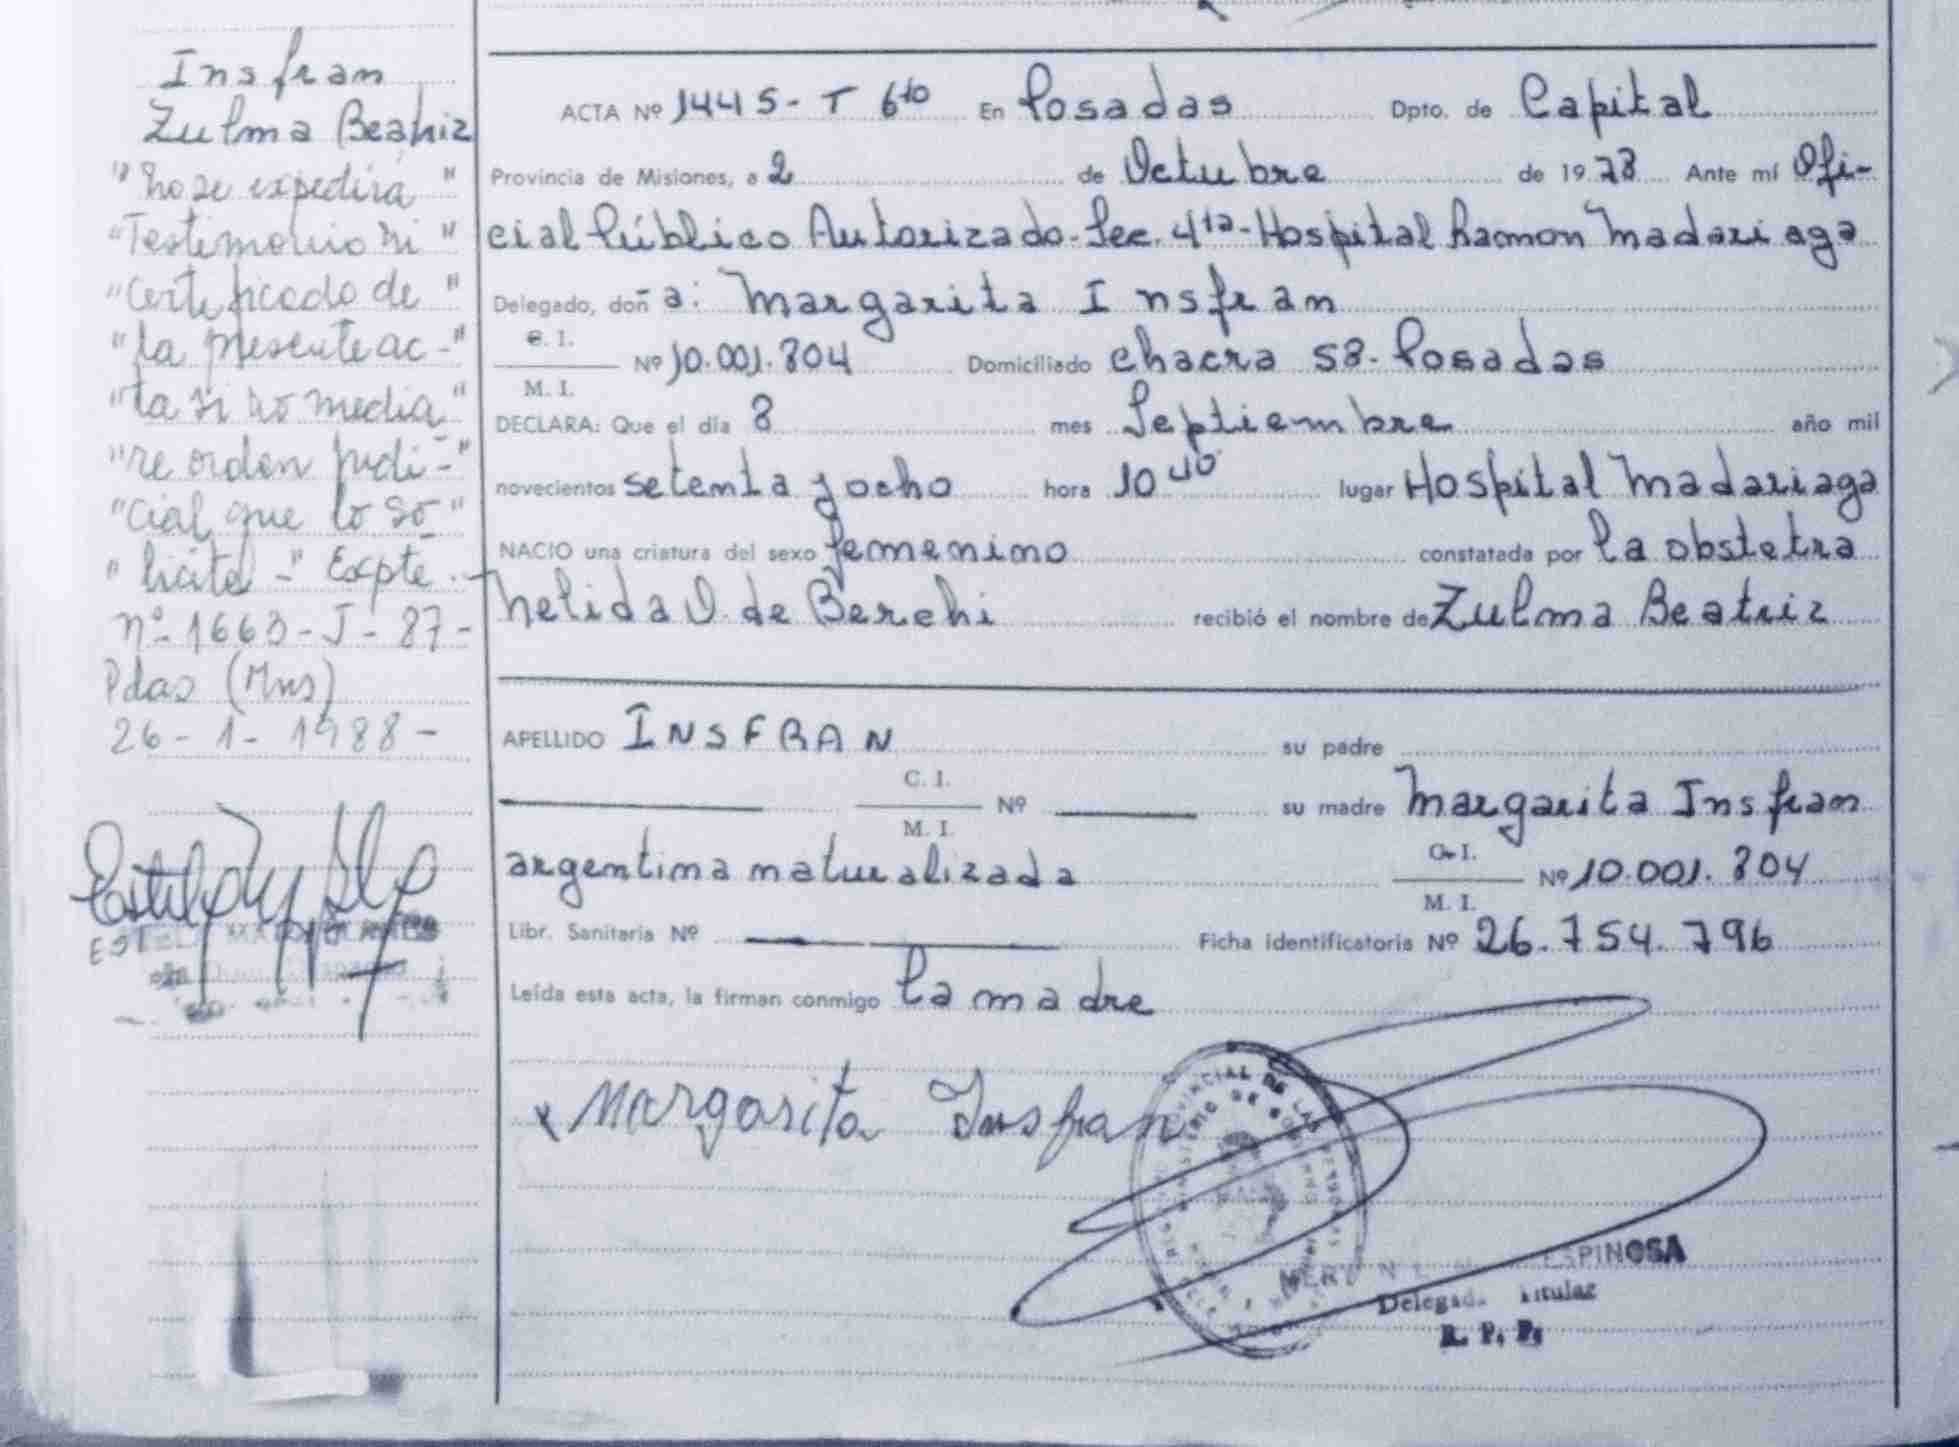 Insfran
Zulma Beatriz
"no se expedirá"
"Testimonio ni"
"Certificado de"
"la presente ac-"
"ta si no media"
"re orden judi-"
"cial que lo so"
"licite-" Expte.
nº-1663-J-87-
Pdas (Mns)
26-1-1988-
ACTA Nº 1445- T 6to En Posadas Dpto. de Capital
Provincia de Misiones, a 2 de Octubre de 1978 Ante mí Ofi-
cial Público Autorizado-Sec. 4ta-Hospital Ramon Madariaga
Delegado, doña: Margarita Insfran
C. I.
M. I.
Nº 10.001.804 Domiciliado chacra 58. Posadas
DECLARA: Que el día 8 mes Septiembre año mil
novecientos setenta y ocho hora 10 40 lugar Hospital Madariaga
NACIO una criatura del sexo femenino constatada por la obstetra
Nelida O. de Berchi recibió el nombre de Zulma Beatriz
APELLIDO INSFRAN su padre
C. I.
M. I.
Nº su madre Margarita Insfran
argentina naturalizada
C. I.
M. I.
Nº 10.001.804
Libr. Sanitaria Nº Ficha identificatoria Nº 26.754.796
Leída esta acta, la firman conmigo la madre
x Margarita Insfran
ESPINOSA
Delegada Titular
R. P. P.